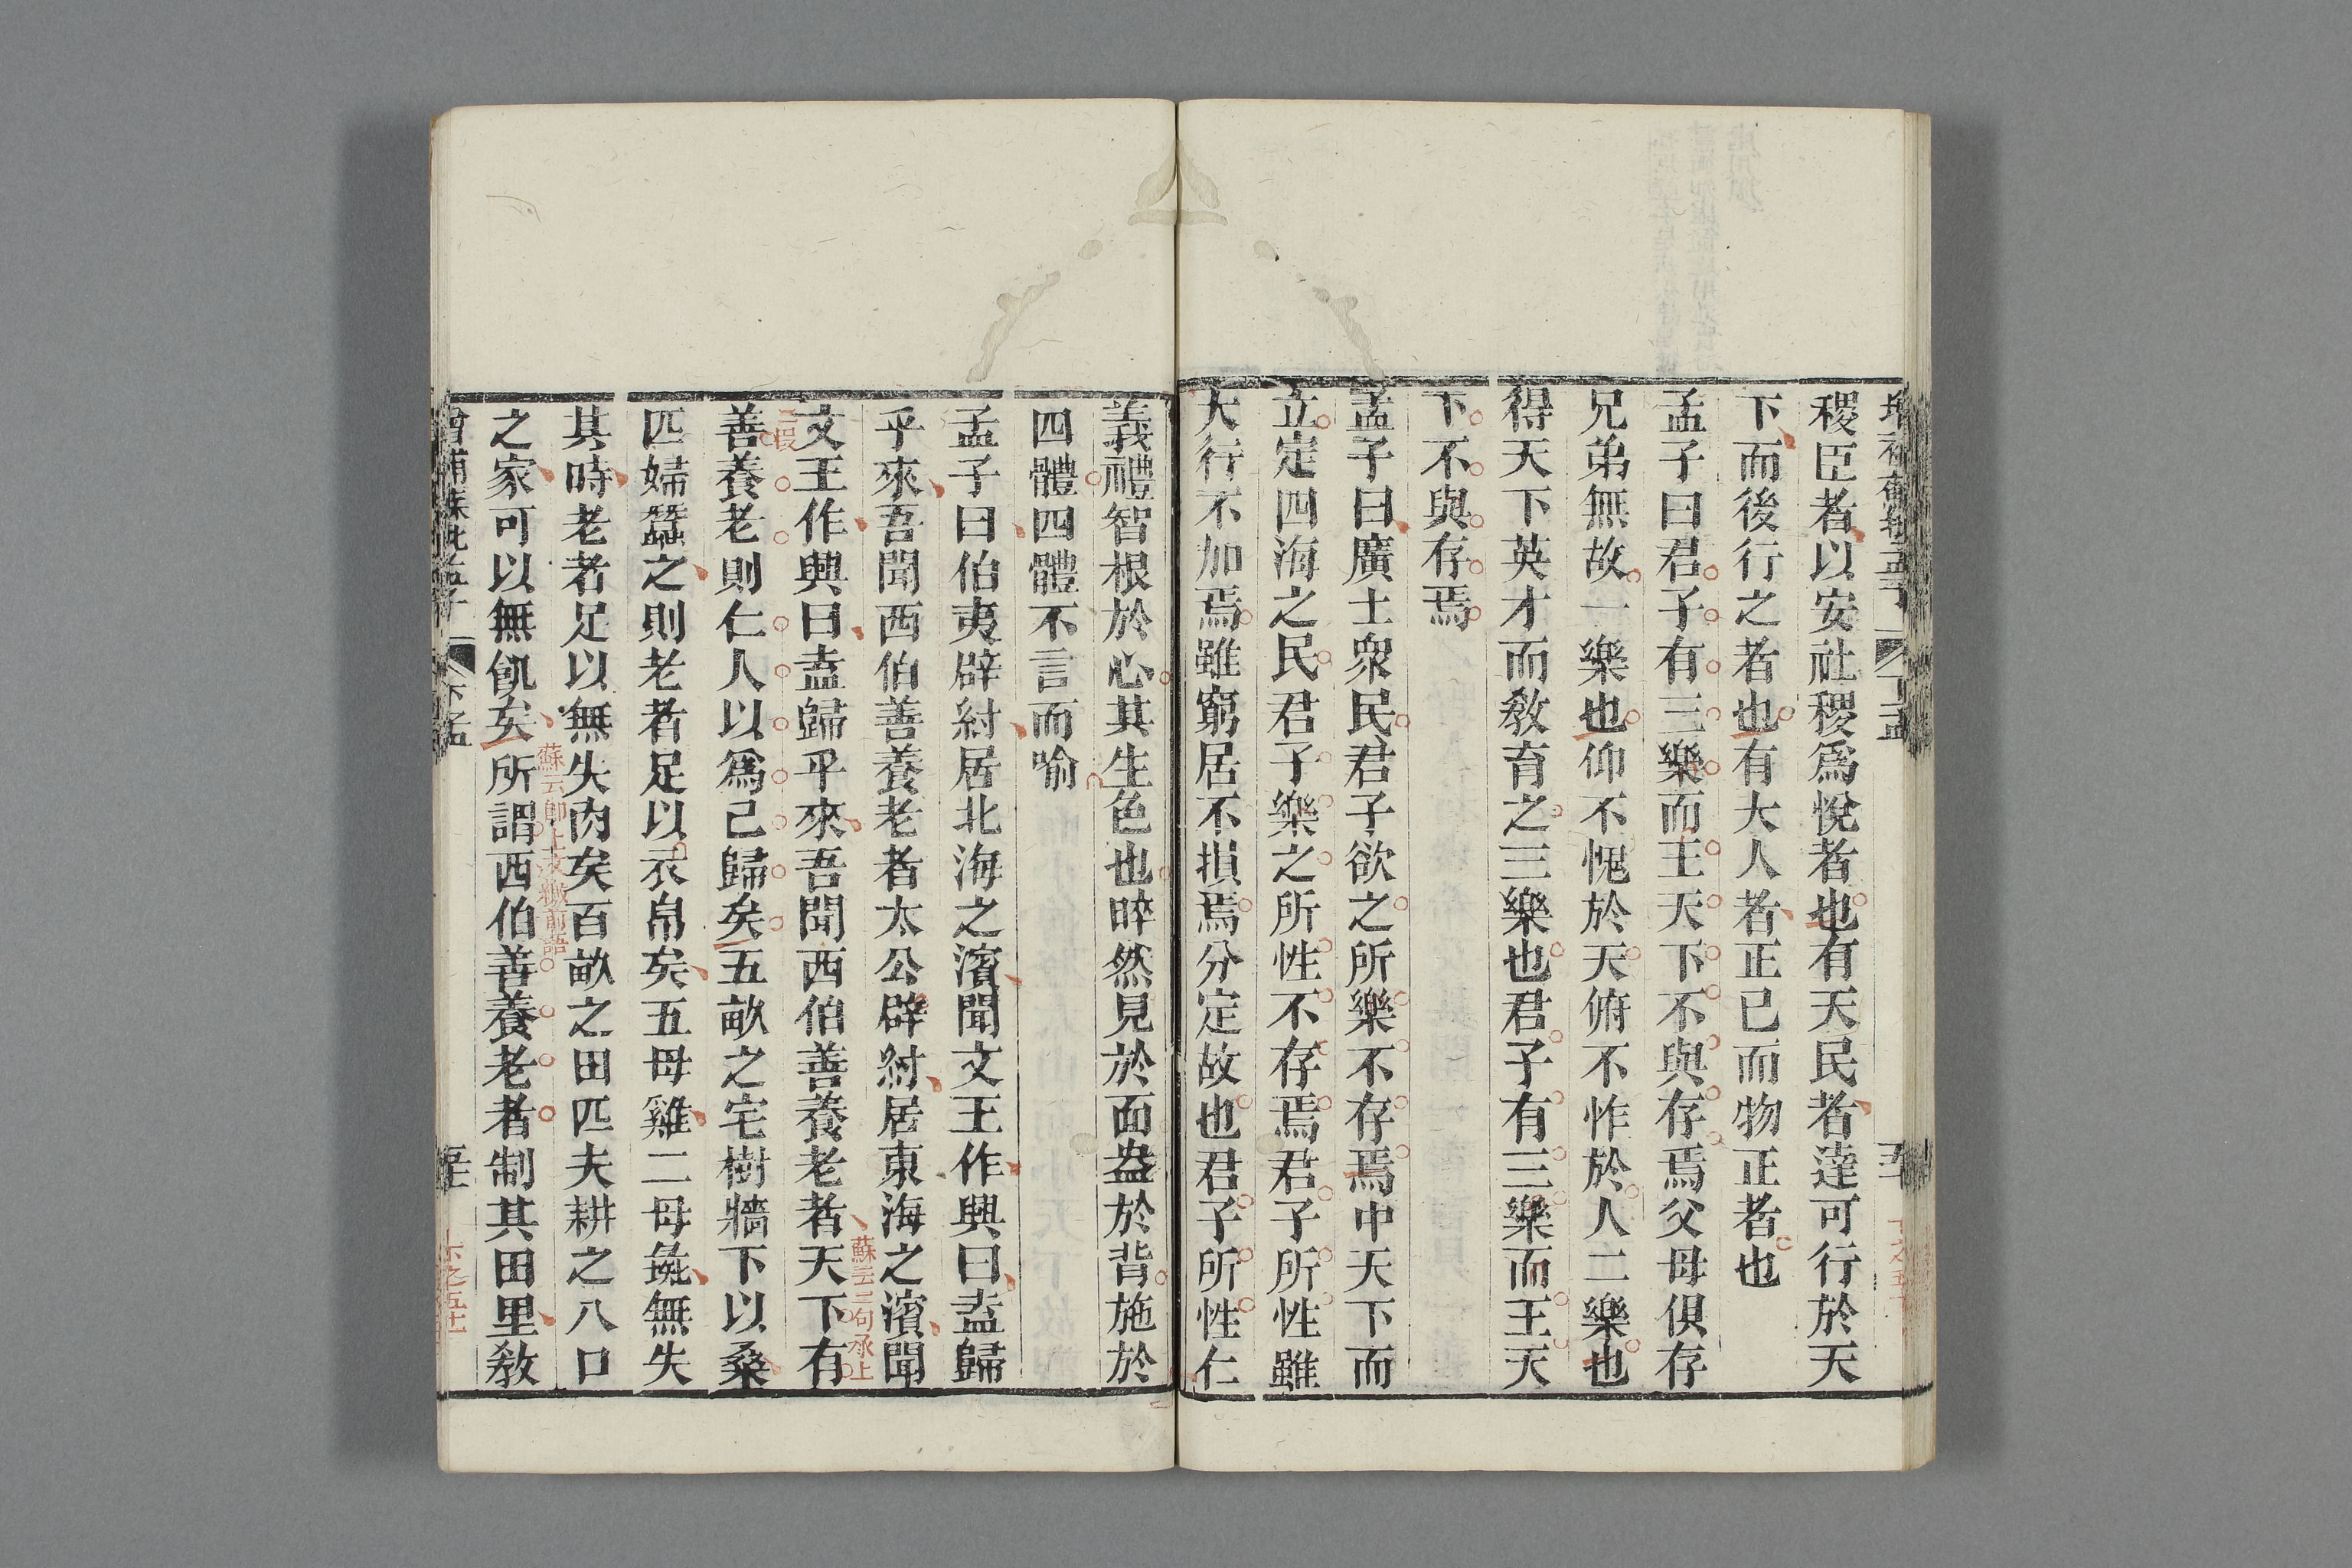 稷臣者以安社稷爲悅者也有天民者達可行於天
下而後行之者也有大人者正已而物正者也
孟子曰君子有三樂而王天下不與存焉父母俱存
兄弟無故一樂也仰不愧於天俯不怍於人二樂也
得天下英才而敎育之三樂也君子有三樂而王天
下不與存焉
孟子曰廣士衆民君子欲之所樂不存焉中天下而
立定四海之民君子樂之所性不存焉君子所性雖
大行不加焉雖窮居不損焉分定故也君子所性仁
義禮智根於心其生色也睟然見於面盎於背施於
四體四體不言而喻
孟子曰伯夷辟紂居北海之濱聞文王作興曰盍歸
乎來吾聞西伯善養老者太公辟紂居東海之濱聞
蘇云三句承上
文王作興曰盍歸乎來吾聞西伯善養老者天下有
二段
善養老則仁人以爲己歸矣五畝之宅樹牆下以桑
匹婦蠶之則老者足以衣帛矣五母雞二母彘無失
其時老者足以無失肉矣百畝之田匹夫耕之八口
蘇云卽上文繳前語
之家可以無飢矣所謂西伯善養老者制其田里敎